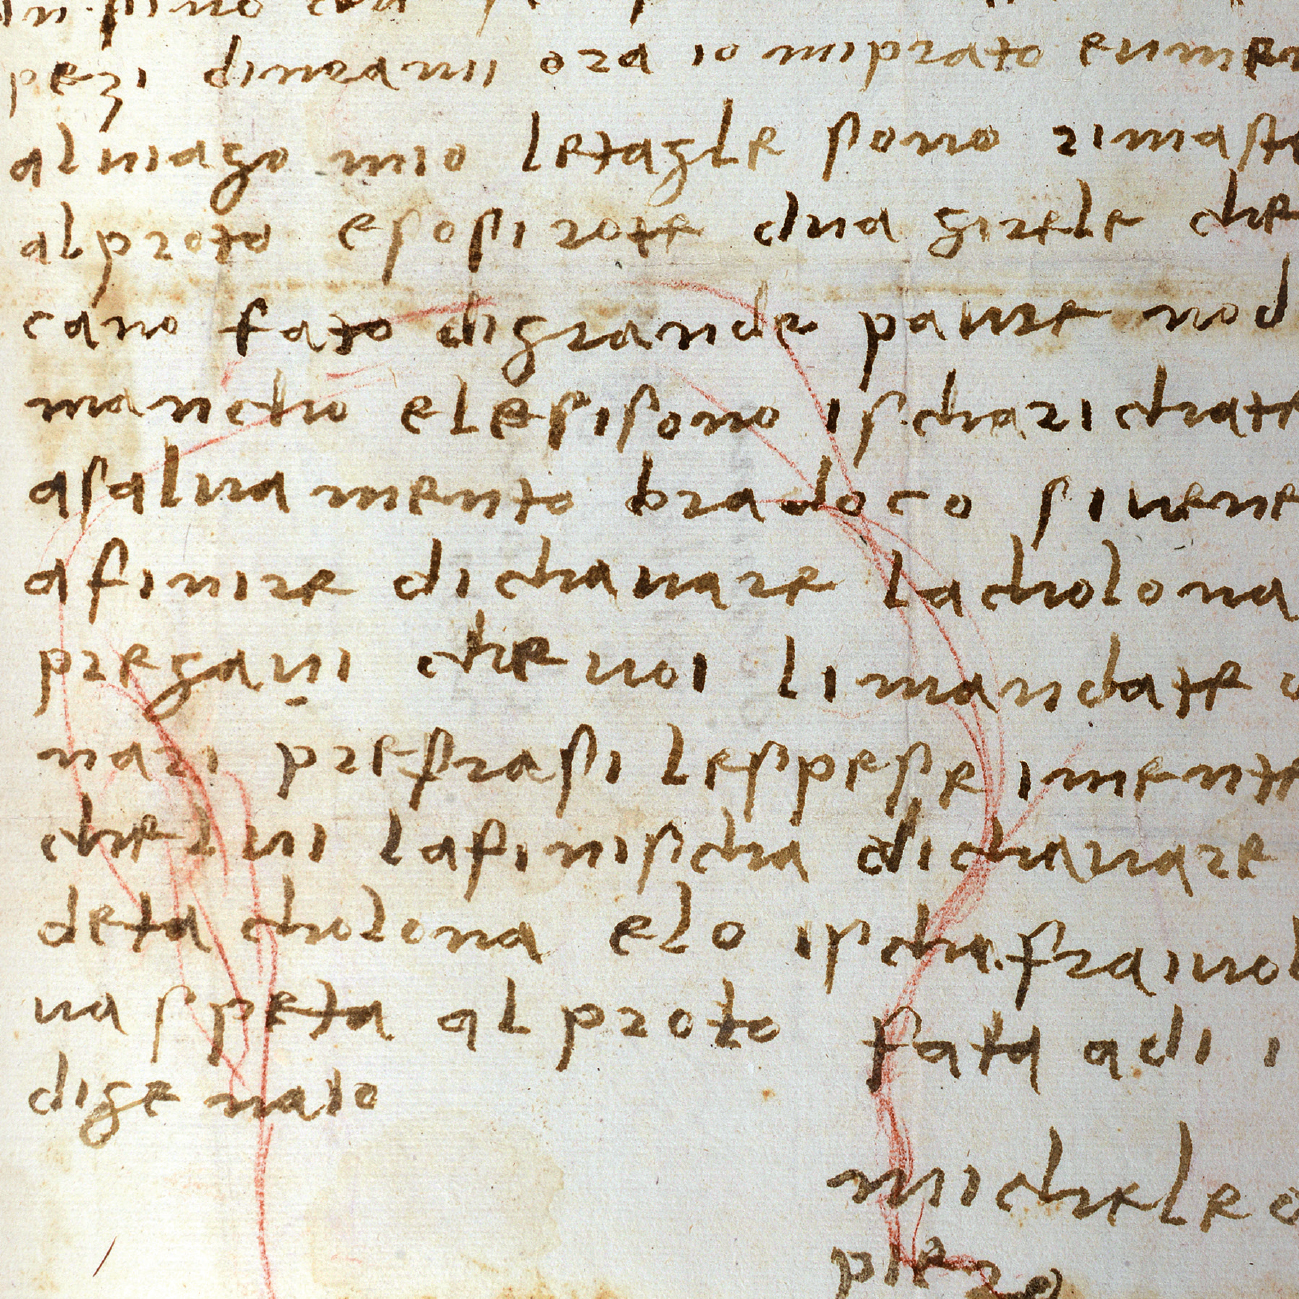 pezi dineanii ora io miprato eume
almago mio letagle sono rimaste
alproto esosi rote dua girele che
cano fato digrande paure nod
mancho elesisono ischarichate
asalvamento bradoco sivene
afinire dichavare lacholona
pregavi chevoi limandate
nari prefrasi lespese imente
chelui lafinischa dichavare
deta cholona elo ischa.fraivol
va speta alproto fata adi i
digenaio
michele
piero